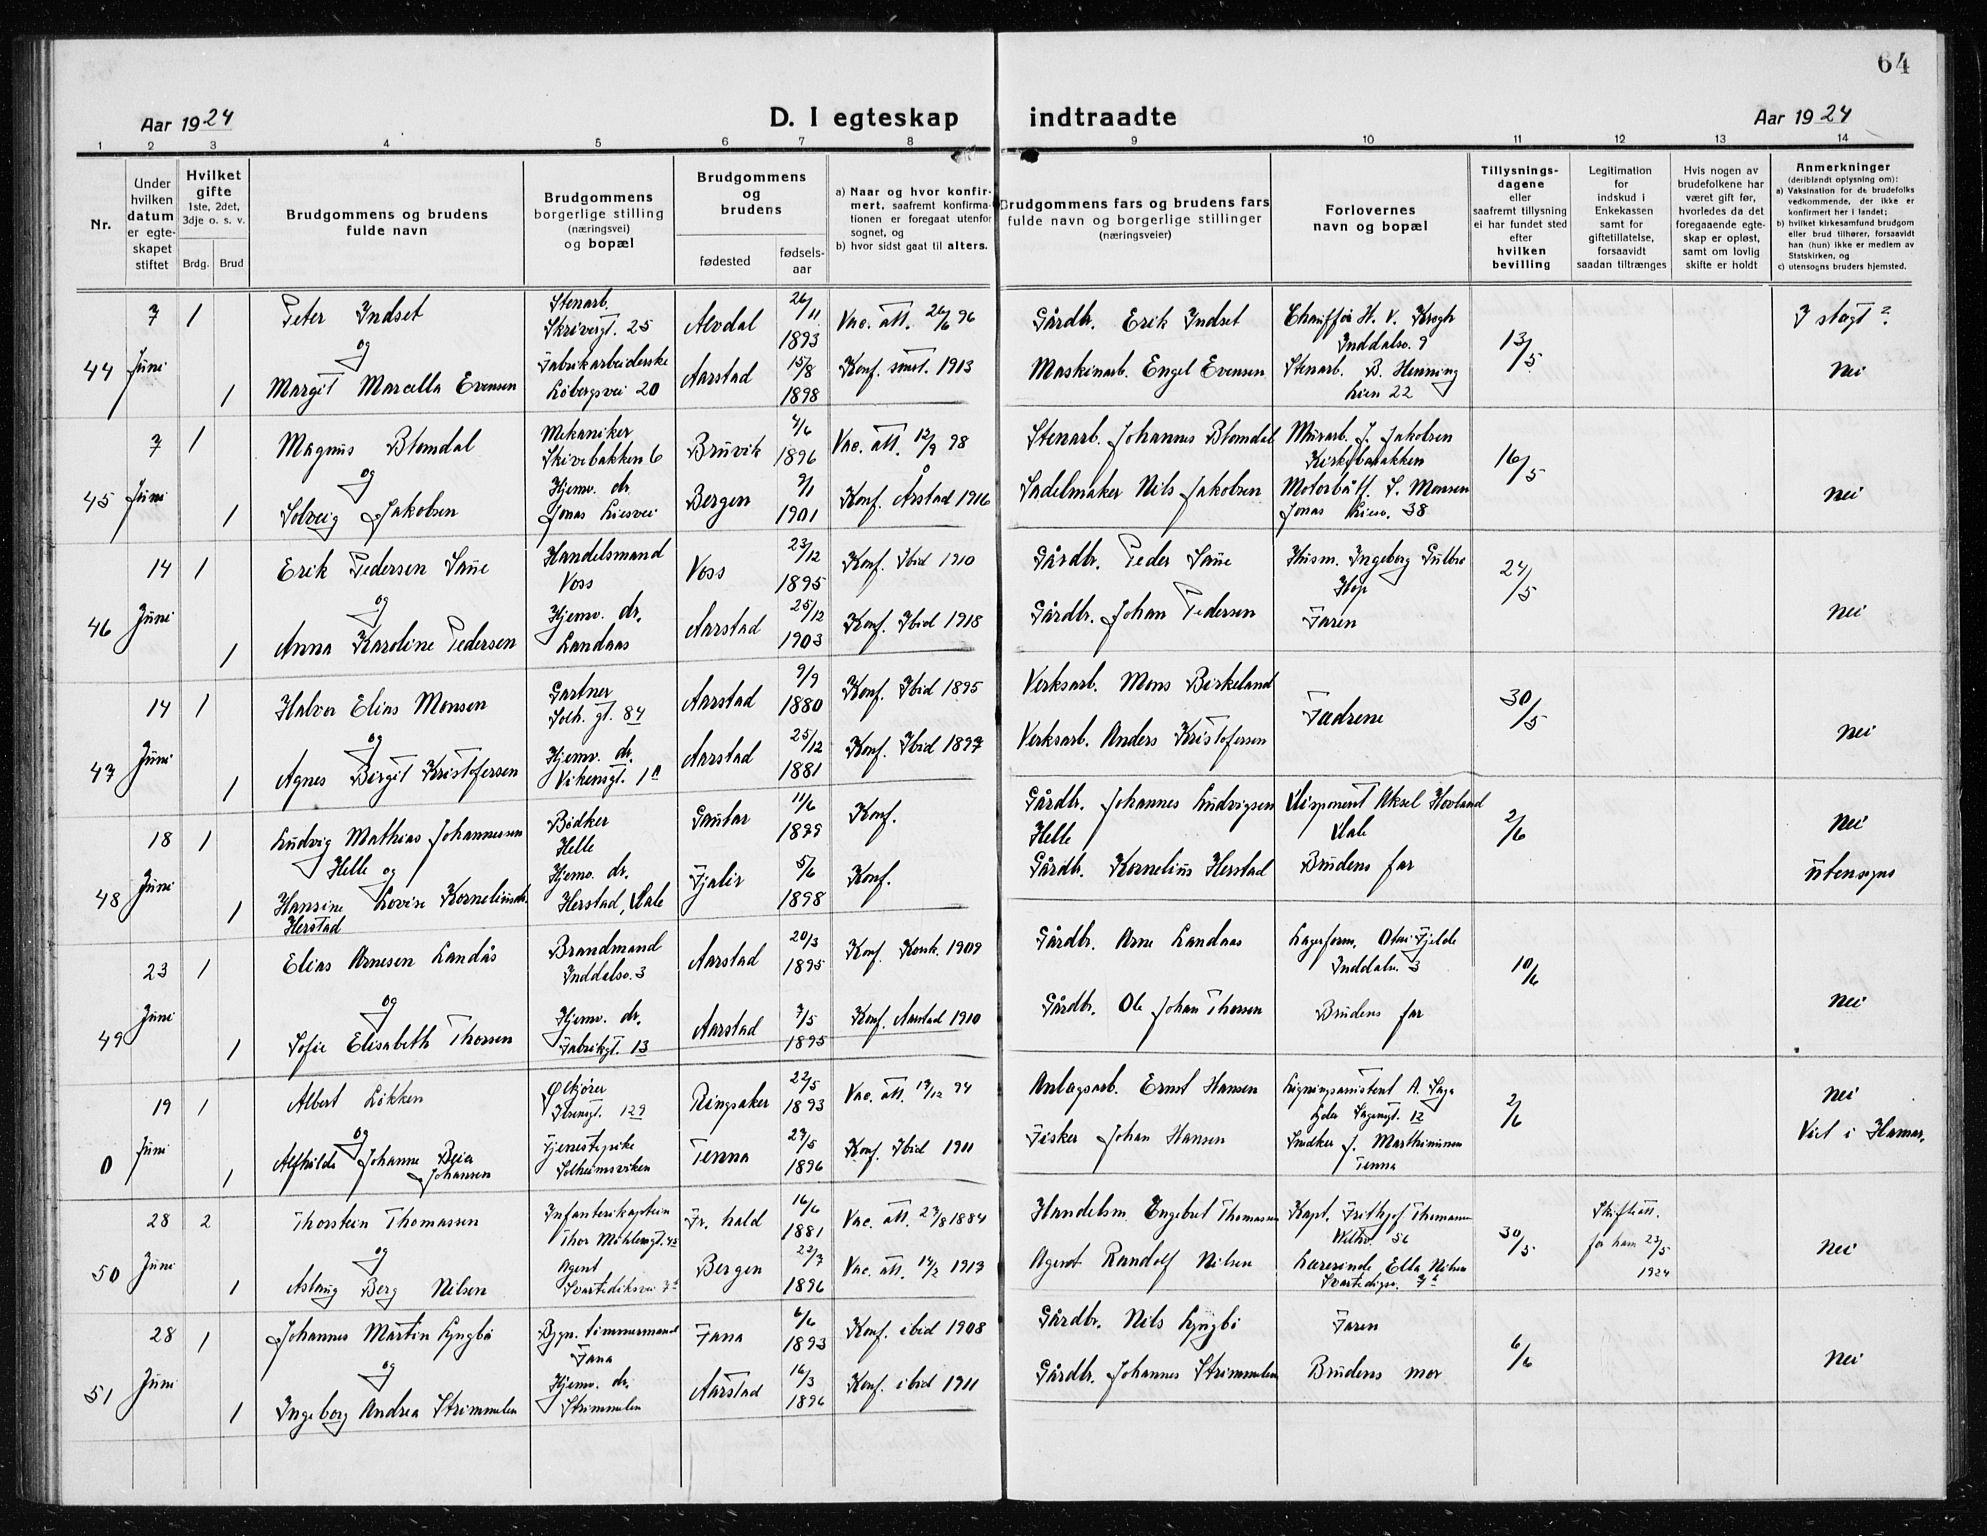 64
Aar 1924
D. I egteskap indtraadte
Aar 1924
1 2 3 4 5 6 7 8 9 10 11 12 13 14
Nr.
Under hvilken datum er egteskapet stiftet
Hvilket gifte
1ste, 2det, 3dje o. s. v.
Brdg. Brud
Brudgommens og brudens fulde navn
Brudgommens borgerlige stilling (næringsvei) og bopæl
Brudgommens og brudens
fødested
fødsels-aar
a) Naar og hvor konfirmert, saafremt konfirmationen er foregaat utenfor sognet, og
b) hvor sidst gaat til alters.
Brudgommens fars og brudens fars fulde navn og borgerlige stillinger (næringsveier)
Forlovernes navn og bopæl
Tillysnings-dagene eller saafremt tillysning ei har fundet sted efter hvilken bevilling
Legitimation for indskud i Enkekassen samt for giftetillatelse, forsaavidt saadan tiltrænges
Hvis nogen av brudefolkene har været gift før, hvorledes da det foregaaende egteskap er opløst, samt om lovlig skifte er holdt
Anmerkninger
(deriblandt oplysning om):
a) Vaksination for de brudefolks vedkommende, der ikke er konfirmert her i landet;
b) hvilket kirkesamfund brudgom eller brud tilhører, forsaavidt han (hun) ikke er medlem av Statskirken, og
c) utensogns bruders hjemsted.
44 7 Juni 1 Peter Indset Stenarb. Skrivergt. 25 Alvdal 26/11 1893 Vac. att. 26/6 96 Gårdbr. Erik Indset Chauffør H. V. Krogh Inddalsv. 9 13/5 I slegt?
og
1 Margit Marcella Evensen Fabrikarbeiderske Løbergsvei 20 Aarstad 15/8 1898 Konf. smst. 1913 Maskinarb. Engel Evensen Stenarb. B. Henning Lien 22 Nei
45 7 Juni 1 Magnus Blomdal Mekaniker Skivebakken 6 Bruvik 4/6 1896 Vac. att. 12/9 98 Stenarb. Johannes Blomdal Murarb. J. Jakobsen Kirkebakken 16/5
og
1 Solveig Jakobsen Hjemv. dr. Jonas Liesvei Bergen 2/1 1901 Konf. Årstad 1916 Sadelmaker Nils Jakobsen Motorbåtf. S. Monsen Jonas Liesv. 38 Nei
46 14 Juni 1 Erik Pedersen Saue Handelsmand Voss Voss 23/12 1895 Konf. Ibid 1910 Gårdbr. Peder Saue Husm. Ingeborg Gulbrø Hop 24/5
og
1 Anna Karoline Pedersen Hjemv. dr. Landaas Aarstad 25/12 1903 Konf. Ibid 1918 Gårdbr. Johan Pedersen Faren Nei
47 14 Juni 1 Halvor Elias Monsen Gartner Solh. gt. 84 Aarstad 9/9 1880 Konf. Ibid 1895 Verksarb. Mons Birkeland Fædrene 30/5
og
1 Agnes Birgit Kristofersen Hjemv. dr. Vikensgt. 1 a Aarstad 25/12 1881 Konf. Ibid 1897 Verksarb. Anders Kristofersen Nei
48 18 Juni 1 Ludvig Mathias Johannesen Helle Bødker Helle Gaular 11/6 1899 Konf. Gårdbr. Johannes Ludvigsen Helle Disponent Aksel Hovland Dale 2/6 Nei
og
1 Hansine Lovise Korneliusdr. Herstad Hjemv. dr. Herstad, Dale Fjaler 5/6 1898 Konf. Gårdbr. Kornelius Herstad Brudens far utensogns
49 23 Juni 1 Elias Arnesen Landås Brandmand Inddalsv. 3 Aarstad 20/3 1895 Konf. Korsk. 1909 Gårdbr. Arne Landaas Lagerform. Olai Fjelde Inddalsv. 3 10/6
og
1 Sofie Elisabeth Thorsen Hjemv. dr. Fabrikgt. 13 Aarstad 7/5 1895 Konf. Aarstad 1910 Gårdbr. Ole Johan Thorsen Brudens far Nei
0 19 Juni 1 Albert Løkken Ølkjører Ibsensgt. 129 Ringsaker 22/5 1893 Vac. att. 14/12 94 Anlægsarb. Ernst Hansen Ligningsassistent A. Saga 12 2/6 Nei
og
1 Alfhilde Johanne Beia Johansen Tjenestepike Solheimsviken Tenna 24/5 1896 Konf. Ibid 1911 Fisker Johan Hansen Snedker J. Marthinusen Tenna Viet i Hamar.
50 28 Juni 2 Thorstein Thomassen Infanterikaptein Thor Møhlensgt. 43 Fr. hald 16/6 1881 Vac. att. 23/8 1884 Handelsm. Engebret Thomassen Kapt. Frithjof Thomassen 56 30/5 Skifteatt. for ham 23/5 1924
og
1 Aslaug Berg Nilsen Agent Svartediksvei 7 a Bergen 22/7 1896 Vac. att. 14/2 1913 Agent Randolf Nilsen Lærerinde Ella Nilsen Svartedigsv. 7 a Nei
51 28 Juni 1 Johannes Martin Lyngbø Bygn. tømmermand Fana Fana 6/6 1893 Konf. ibid 1908 Gårdbr. Nils Lyngbø Faren 6/6
og
1 Ingeborg Andrea Strimmelen Hjemv. dr. Strimmelen Aarstad 16/3 1896 Konf. ibid 1911 Gårdbr. Johannes Strimmelen Brudens mor Nei